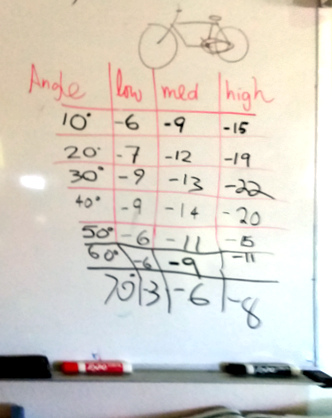 Angle low med high
10° -6 -9 -15
20° -7 -12 -19
30° -9 -13 -22
40° -9 -14 -20
50° -6 -11 -15
60° -6 -9 -11
70° 3 -6 -8
EXPO